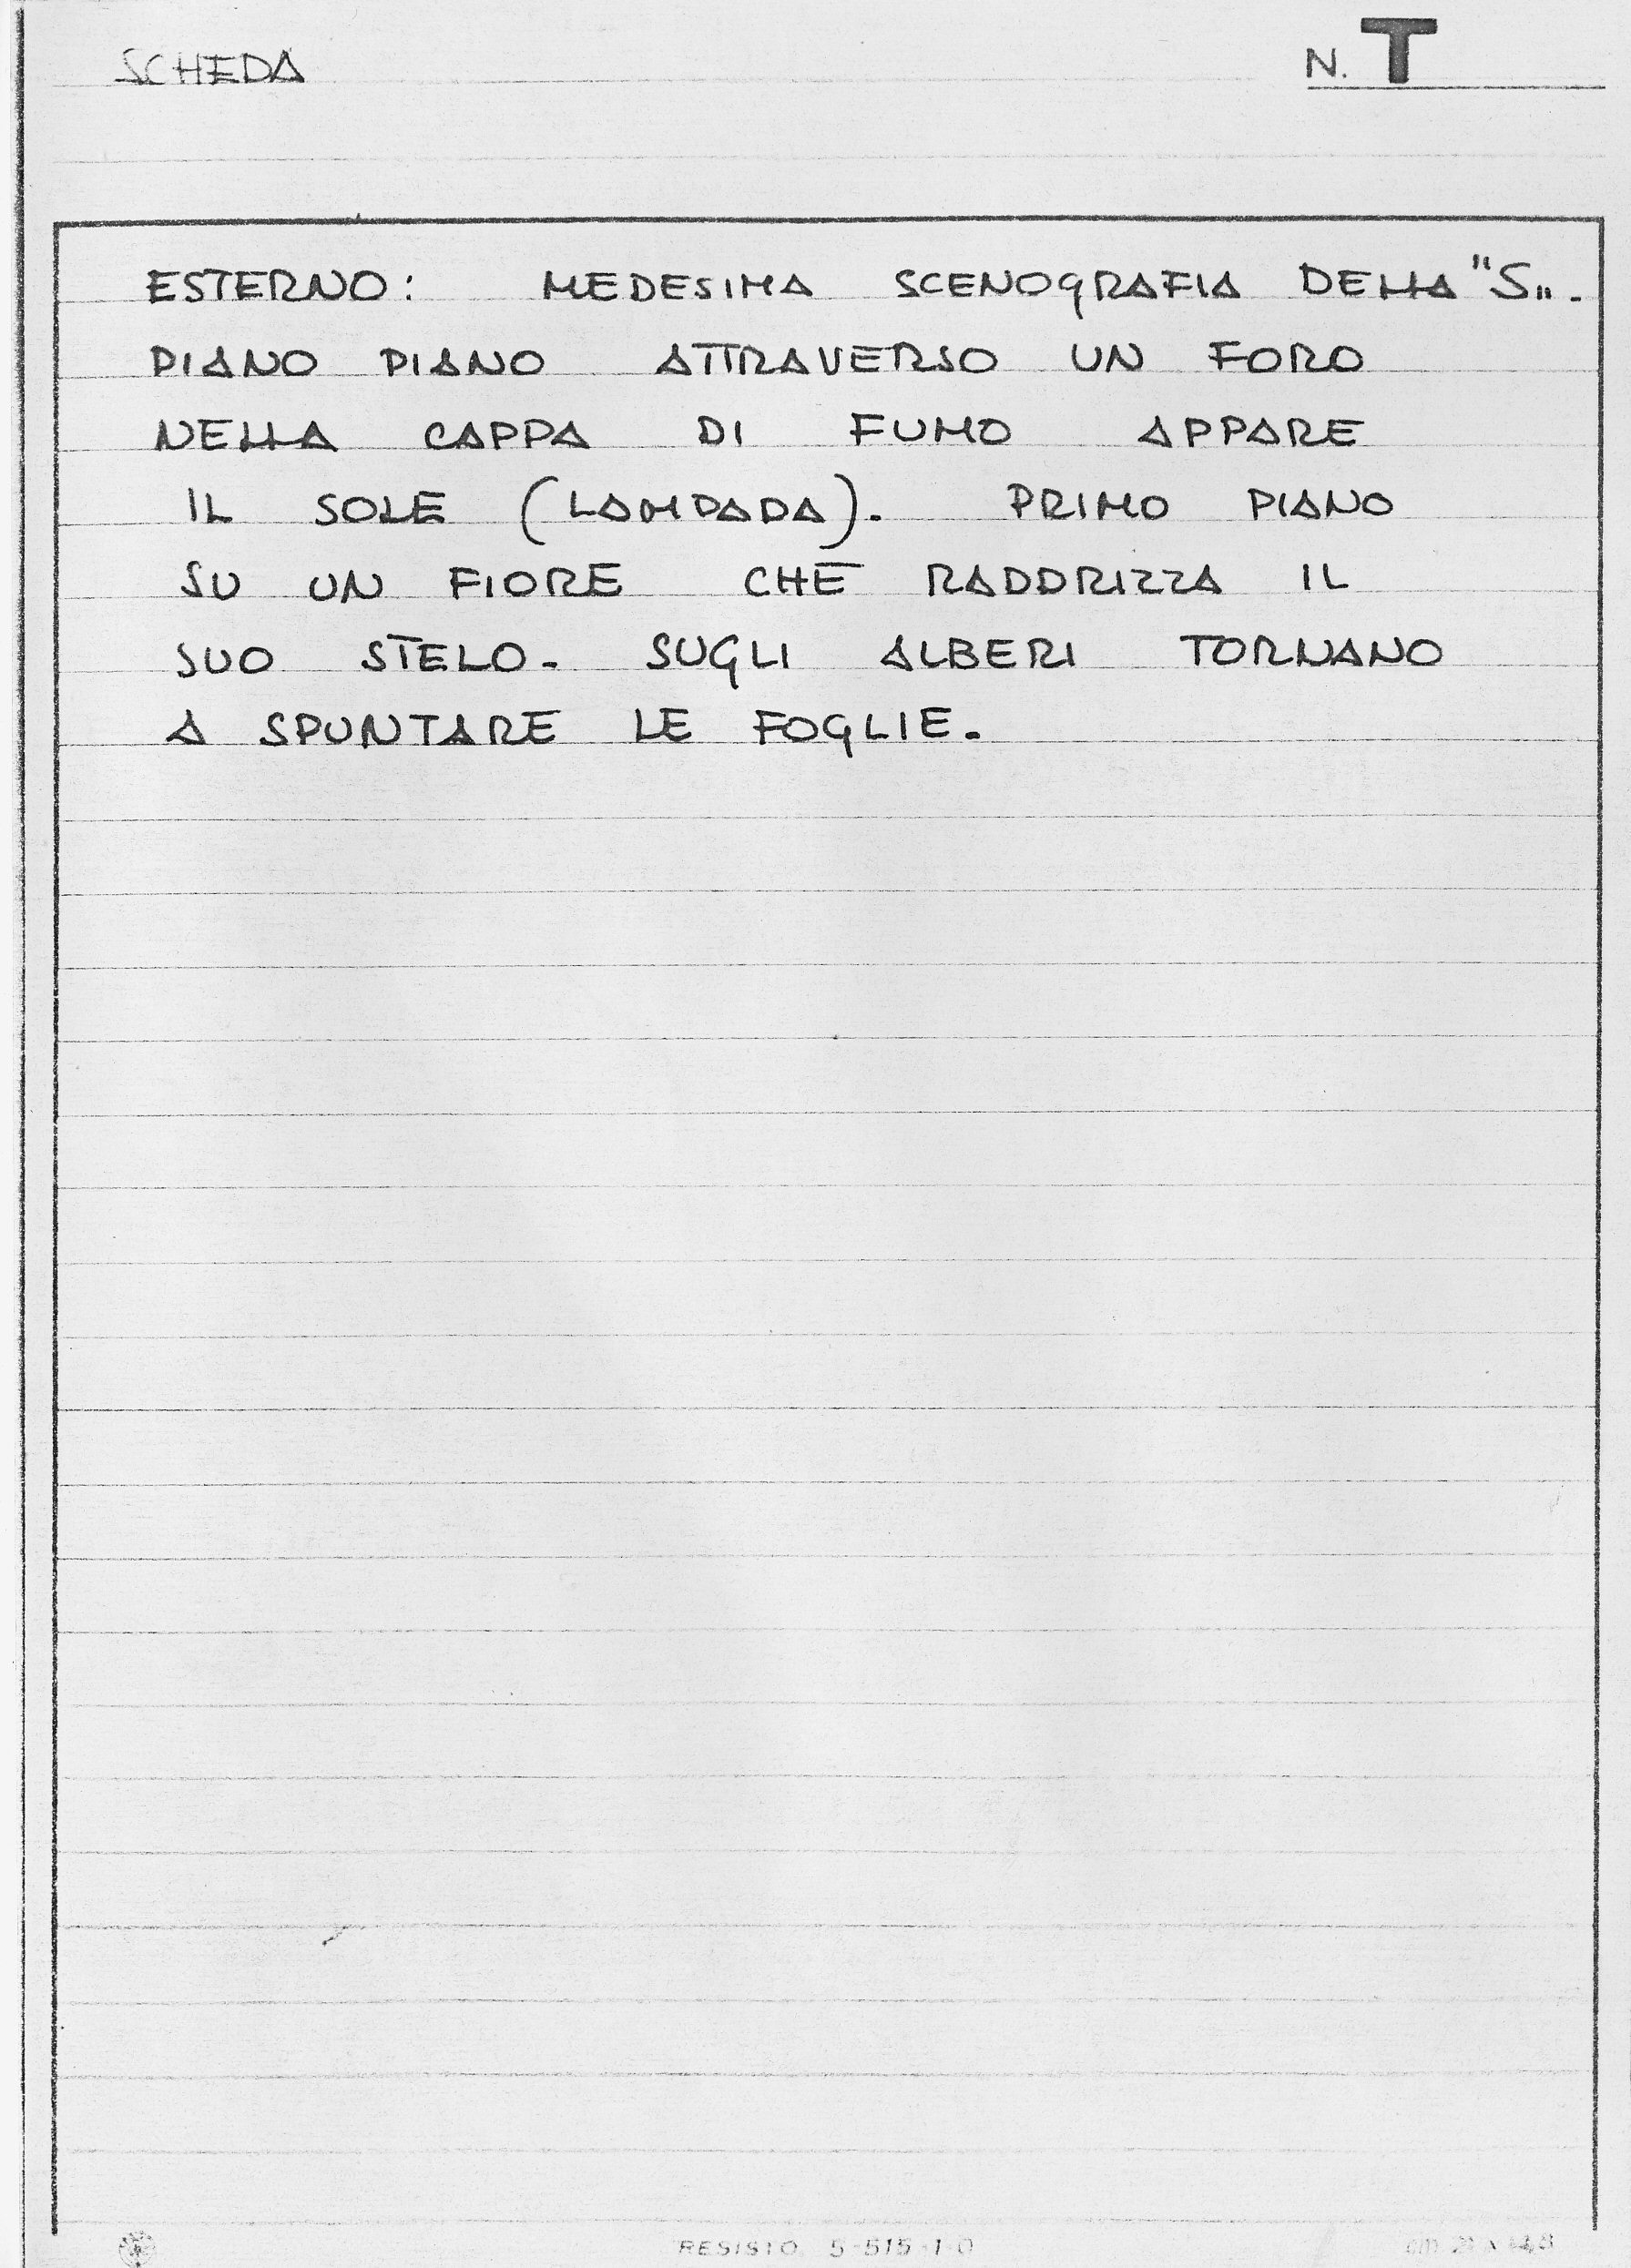 SCHEDA N. T
ESTERNO: MEDESIMA SCENOGRAFIA DELLA "S".
PIANO PIANO ATTRAVERSO UN FORO
NELLA CAPPA DI FUMO APPARE
IL SOLE (LAMPADA). PRIMO PIANO
SU UN FIORE CHE RADDRIZZA IL
SUO STELO. SUGLI ALBERI TORNANO
A SPUNTARE LE FOGLIE.
RESISTO 5-515-1-0